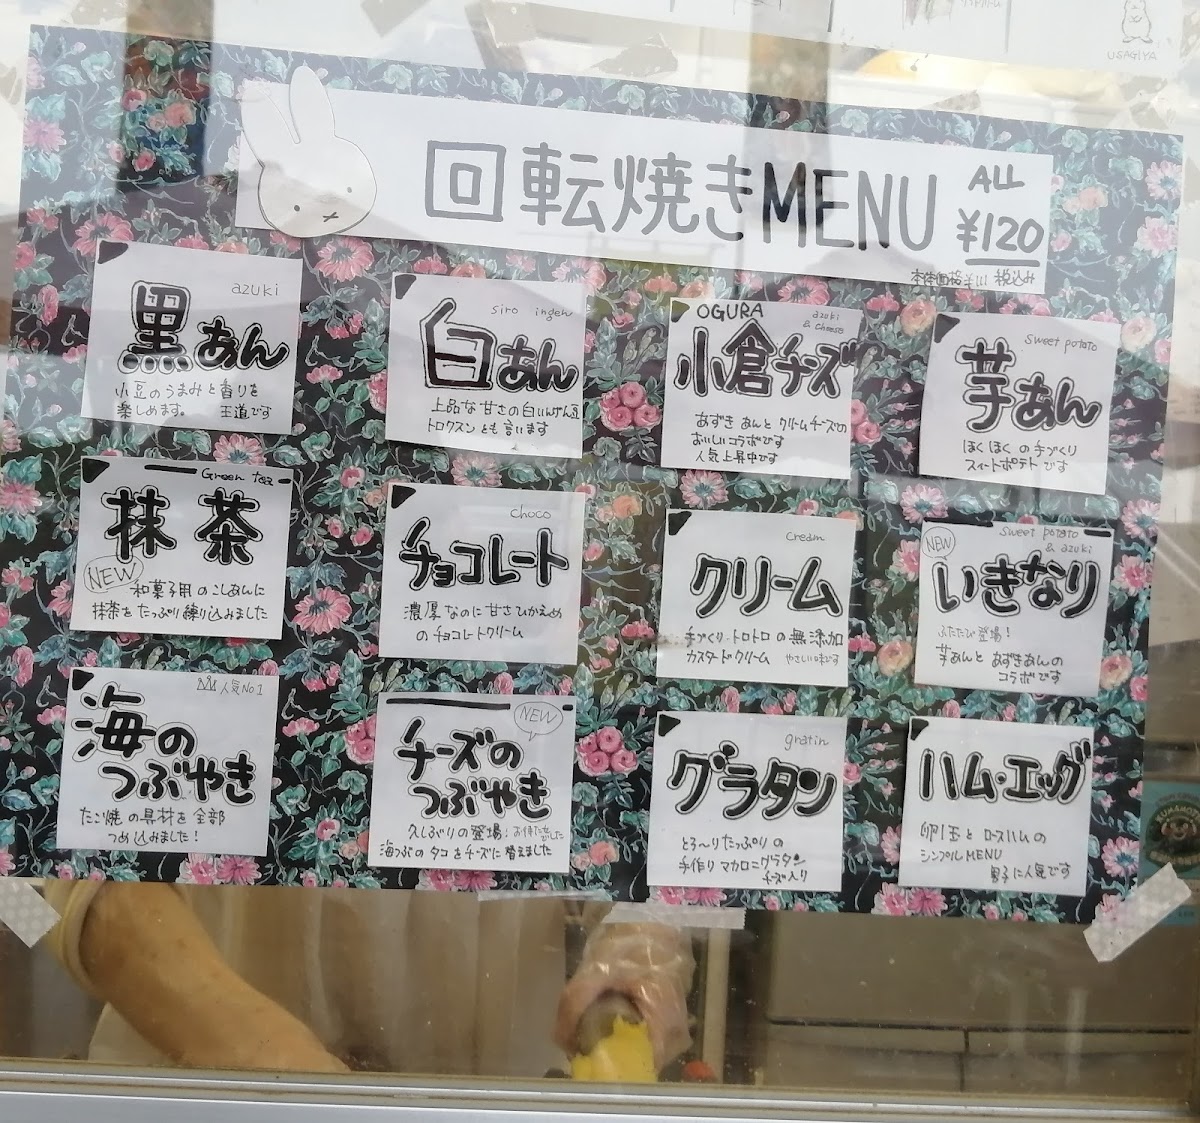 USAGIYA
回転焼きMENU
ALL
¥120
本体価格¥111 税込み
azuki
黒あん
小豆のうまみと香りを
楽しめます。 王道です
siro ingen
白あん
上品な甘さの白いんげん豆
トロクスンとも言います
OGURA
azuki
& cheese
小倉チーズ
あずきあんとクリームチーズの
おいしいコラボです
人気上昇中です
sweet potato
芋あん
ほくほくの手づくり
スイートポテトです
Green tea
抹茶
NEW
和菓子用のこしあんに
抹茶をたっぷり練り込みました
choco
チョコレート
濃厚なのに甘さひかえめ
のチョコレートクリーム
cream
クリーム
手づくり・トロトロの無添加
カスタードクリーム やさしい味です
NEW
sweet potato
& azuki
いきなり
ふたたび登場！
芋あんとあずきあんの
コラボです
人気No1
海の
つぶやき
たこ焼の具材を全部
つめ込みました！
NEW
チーズの
つぶやき
久しぶりの登場！お待たせしました
海つぶのタコをチーズに替えました
gratin
グラタン
とろ〜りたっぷりの
手作りマカロニグラタン
チーズ入り
ハム・エッグ
卵1玉とロースハムの
シンプルMENU
男子に人気です